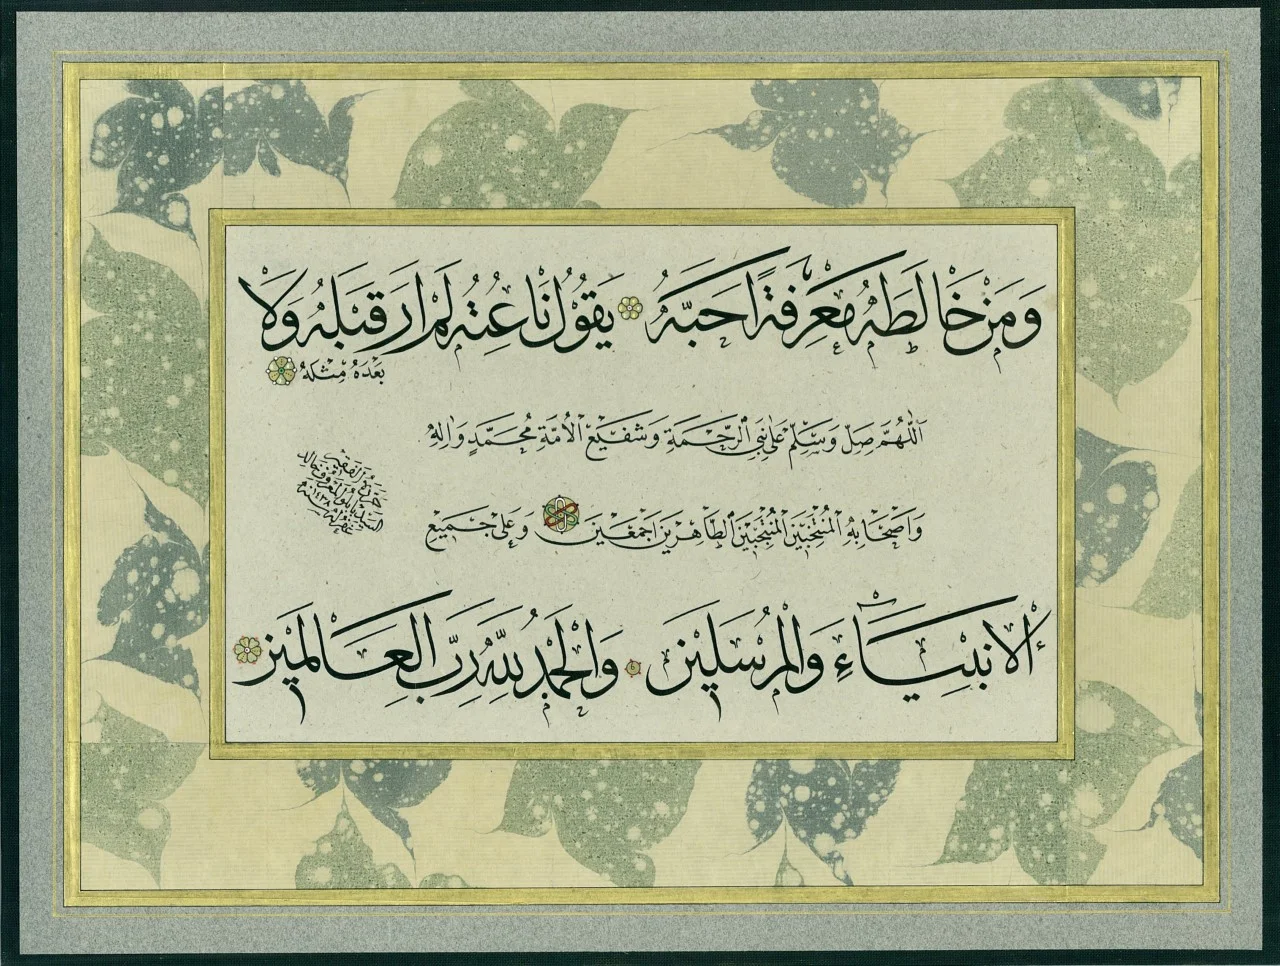 وَمَنْ خَالَطَهُ مَعْرِفَةً اَحَبَّهُ يَقُولُ نَاعِتُهُ لَمْ اَرَ قَبْلَهُ وَلَا
بَعْدَهُ مِثْلَهُ
اَللّٰهُمَّ صَلِّ وَسَلِّمْ عَلٰى نَبِيِّ الرَّحْمَةِ وَشَفِيعِ الْاُمَّةِ مُحَمَّدٍ وَاٰلِهِ
وَاَصْحَابِهِ الْمُنْتَخَبِينَ الْمُنْتَجَبِينَ الطَّاهِرِينَ اَجْمَعِينَ وَعَلٰى جَمِيعِ
الْاَنْبِيَاءِ وَالْمُرْسَلِينَ وَالْحَمْدُ لِلّٰهِ رَبِّ الْعَالَمِينَ
الفقير
١٤٣٨